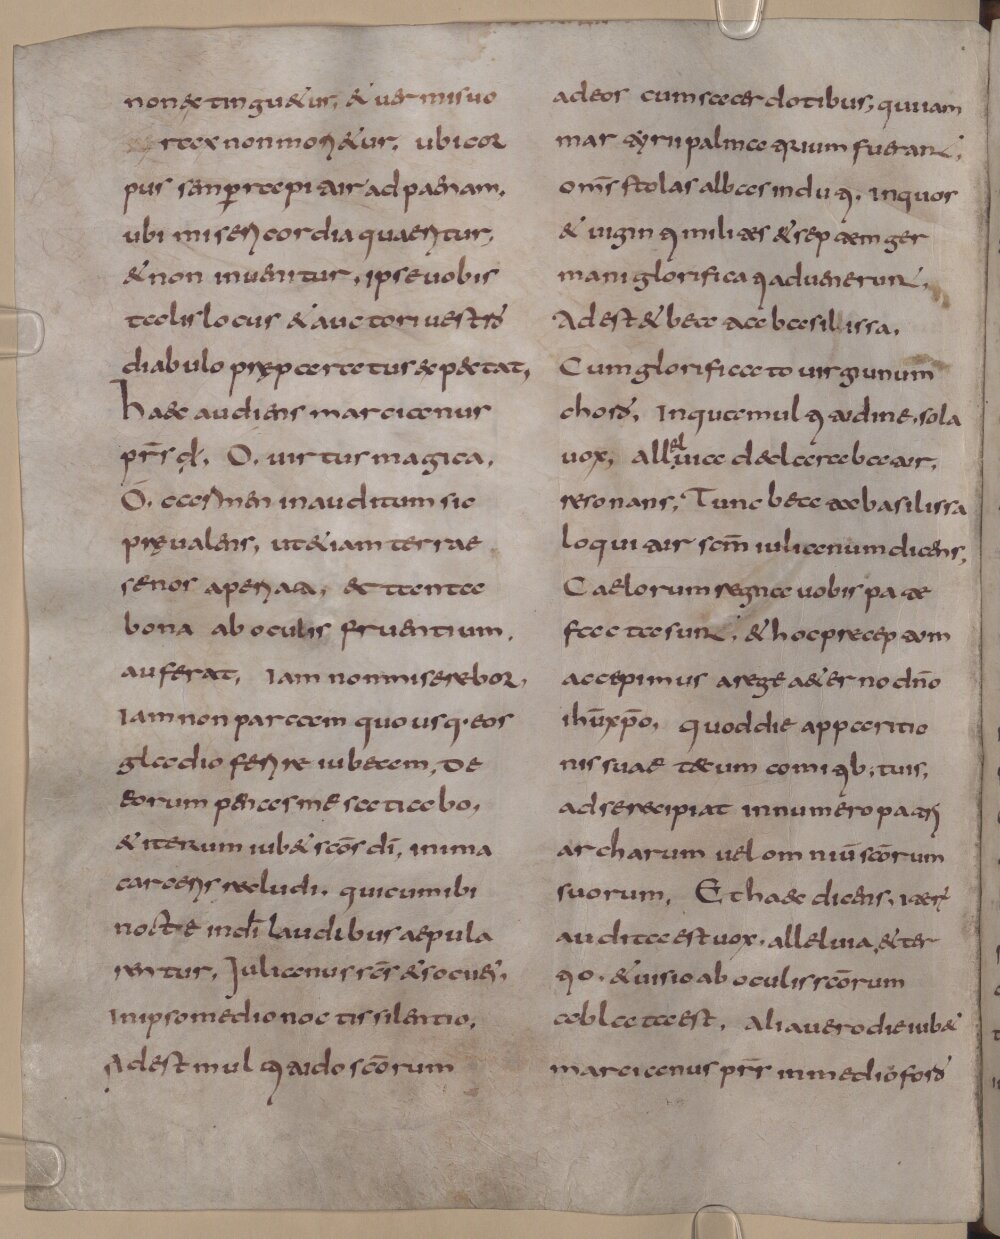 non extinguetur, & uermis uo
rax non moritur, ubi cor
pus semp reparatur ad paenam,
ubi misericordia quaeritur,
& non inuenitur, ipse uobis
talis locus & auctori uestro
diabulo praeparatus expectat,
haec audiens marcianus
prs d, O, uirtus magica,
O, carmen inauditum sic
praeualens, ut etiam terrae
senos aperiat, et tanta
bona ab oculis fruentium,
auferat, Iam non miserebor,
Iam non parcam quousq; eos
gladio ferire iubeam, de
eorum paenas me satiabo,
& iterum iub& scos di, in ima
carceris recludi, qui cum ibi
nocte in di laudibus aepula
rentur, Iulianus scs & socii ei,
In ipso medio noctis silentio,
Adest multitudo scorum
ad eos cum sacerdotibus, qui iam
martyrii palmae qrium fuerant,
oms stolas albas induti, in quos
& uiginti milites & septem ger
mani glorificati aduenerunt,
Adest & beata a basilissa,
Cum glorificato uirginum
choro, In qua multitudine, sola
uox, alleluia declarabatur,
resonans, Tunc beata basilissa
loqui atur scm iulianum dicens,
Caelorum regna uobis pate
facta sunt, & hoc praeceptum
accepimus a rege aeterno dno
ihu xpo, quod die apparitio
nis suae te cum comitib; tuis,
ad se recipiat in numero patri
archarum uel omniu scorum
suorum, Et haec dicens, iter
audita est uox, alleluia, & ter
tio, & uisio ab oculis scorum
ablata est, Alia uero die iub&
marcianus prs in medio foro